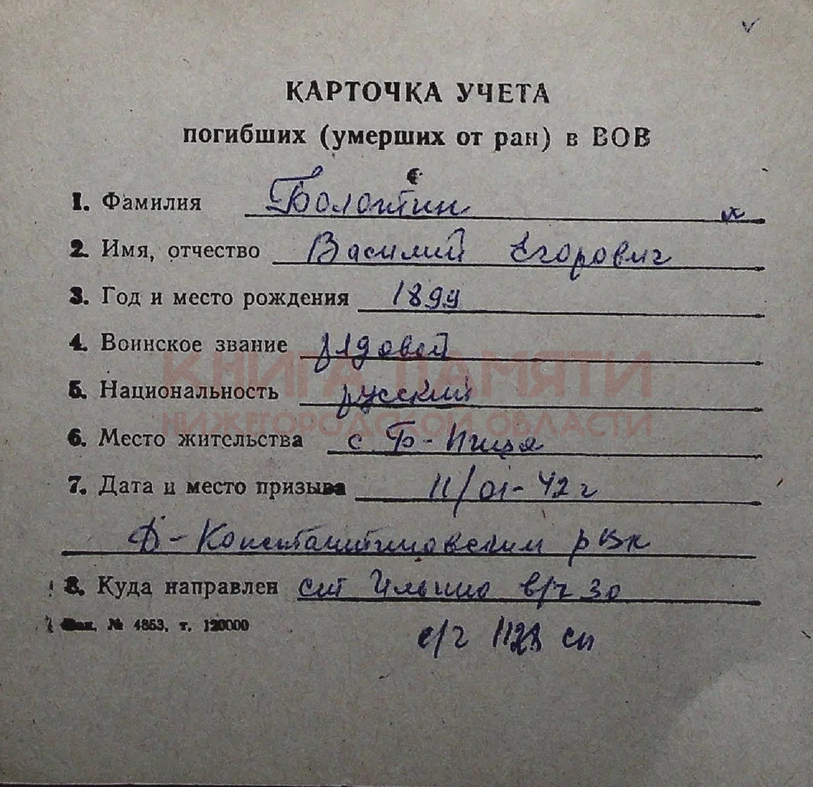 КАРТОЧКА УЧЕТА
погибших (умерших от ран) в ВОВ
е
1. Фамилия Болотин
2. Имя, отчество Василий Егорович
3. Год и место рождения 1899
4. Воинское звание рядовой
КНИГА ПАМЯТИ
5. Национальность русский
НИЖЕГОРОДСКОЙ ОБЛАСТИ
6. Место жительства с Б-Пица
7. Дата и место призыва 11/01-42 г
Д-Константиновским рвк
8. Куда направлен ст Ильино в/ч 30
Зак. № 4853, т. 120000
с/г сп